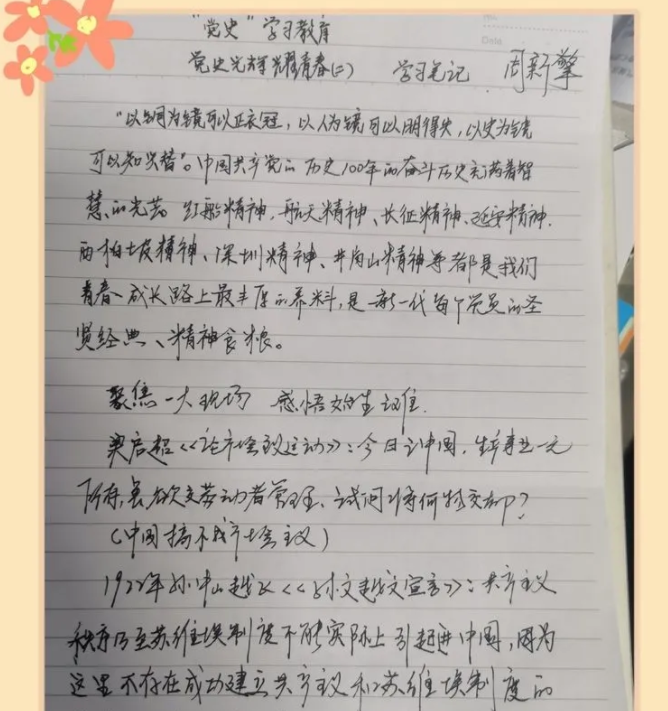 "党史"学习教育
党史光辉耀青春(二) 学习笔记 周新擎
Date
"以铜为镜可以正衣冠，以人为镜可以明得失，以史为镜
可以知兴替"。中国共产党的历史100年的奋斗历史充满着智
慧的光芒 红船精神，航天精神、长征精神、延安精神.
西柏坡精神、深圳精神、井岗山精神等都是我们
青春成长路上最丰厚的养料，是新一代每个党员的圣
贤经典、精神食粮。
聚焦一大现场 感悟始生艰难.
梁启超《论社会主义运动》：今日之中国，生产事业一无
所有，虽欲交劳动者管理、试问将何物交却?
(中国搞不成社会主义)
1922年孙中山越飞《孙文越文宣言》：共产主义
秩序乃至苏维埃制度不能实际上引起进中国，因为
这里不存在成功建立共产主义和苏维埃制度的